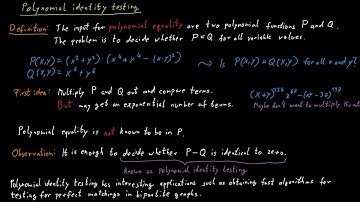 Polynomial identity testing
Definition: The input for polynomial equality are two polynomial functions P and Q.
The problem is to decide whether P=Q for all variable values.
P(x,y) = (x²+y²) (x⁴+y⁴-(x·y)²)
Q(x,y) = x⁶+y⁶
→ Is P(x,y)=Q(x,y) for all x and y?
First idea: Multiply P and Q out and compare terms.
But may get an exponential number of terms.
Maybe don't want to multiply this out
Polynomial equality is not known to be in P.
Observation: It is enough to decide whether P-Q is identical to zero.
Known as polynomial identity testing
Polynomial identity testing has interesting applications such as obtaining fast algorithms for
testing for perfect matchings in bipartite graphs.